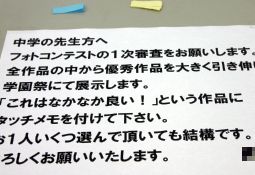 中学の先生方へ
フォトコンテストの１次審査をお願いします。
全作品の中から優秀作品を大きく引き伸
学園祭にて展示します。
「これはなかなか良い！」という作品に
タッチメモを付けて下さい。
お１人いくつ選んで頂いても結構です。
ろしくお願いいたします。